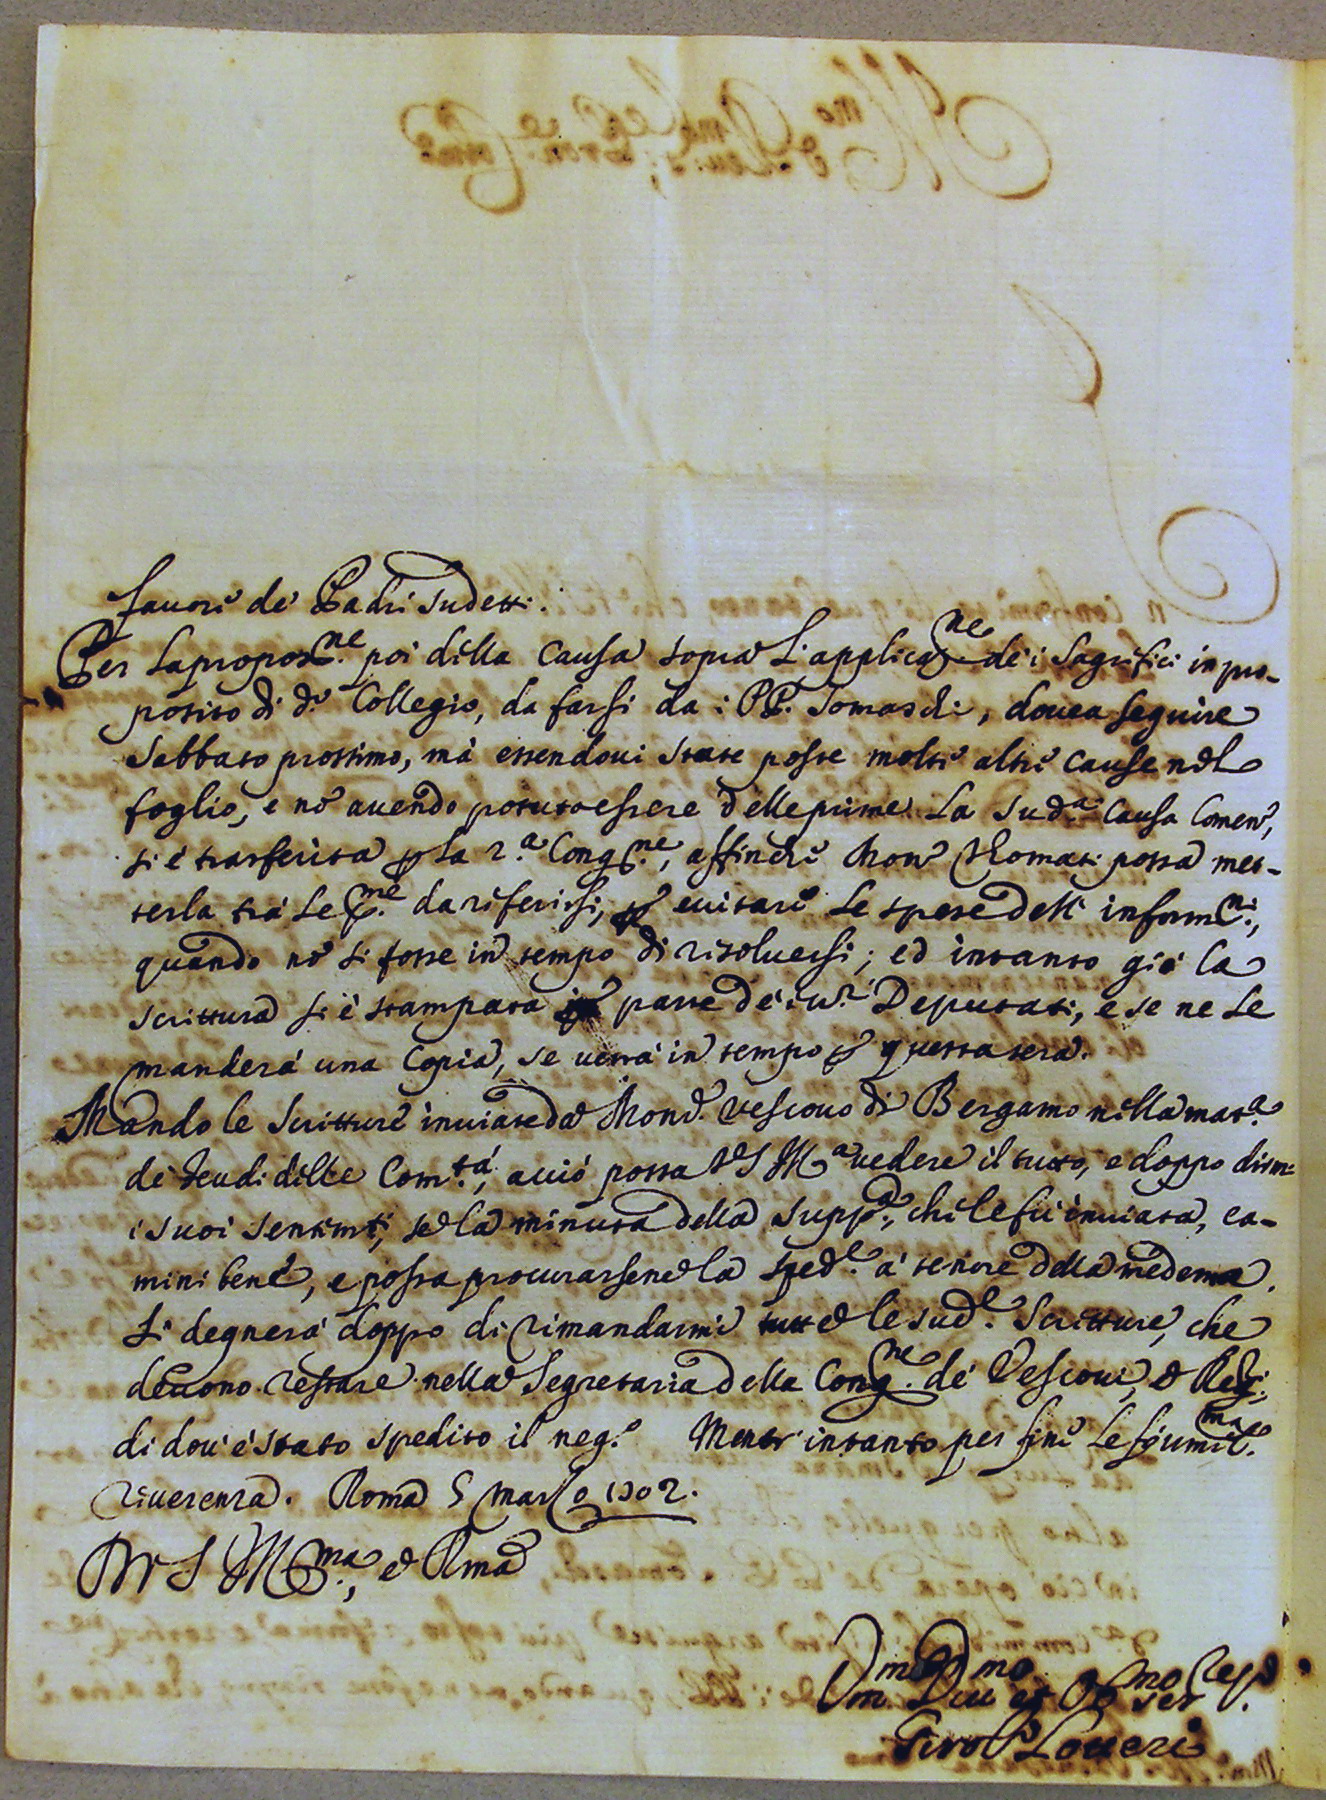 favori de Padri sudetti.
Per la propos.ne poi della causa sopra l'applicaz.ne de i Sagrifici in pro-
posito di d.o Collegio, da farsi da i PP. Somaschi, dovea seguire
Sabbato prossimo, mà essendovi state poste molte altre cause nel
foglio, e nõ avendo potuto essere delle prime la sud.a causa
si è trasferita p la 2.a Cong.ne, affinche Mons.r Thomati possa met-
terla trà le p.me da riferirsi, p evitare le spese dell' inform.ni,
quando nõ si fosse in tempo di risolversi; ed intanto già la
scrittura si è stampata parte de i Deputati, e se ne le
manderà una Copia, se verrà in tempo p questa sera.
Mando le Scritture inviate da Mons.r Vescovo di Bergamo nella mat.a
de feudi delle Com.tà, acciò possa V.S. Ill.ma vedere il tutto, e doppo dirmi
i suoi sentim.ti, se la minuta della supp.a, che le fù inviata, ca-
mini bene, e possa procurarsene la sped.e à tenore della medema.
Si degnerà doppo di rimandarmi tutte le sud.e Scritture, che
devono restare nella Segretaria della Cong.ne de Vescovi, e Reg.ri
di dov' è stato spedito il neg.o Mentr' intanto per fine le fò umil.ma
riverenza. Roma 5 Marzo 1702.
Di V S Ill.ma, e R.ma